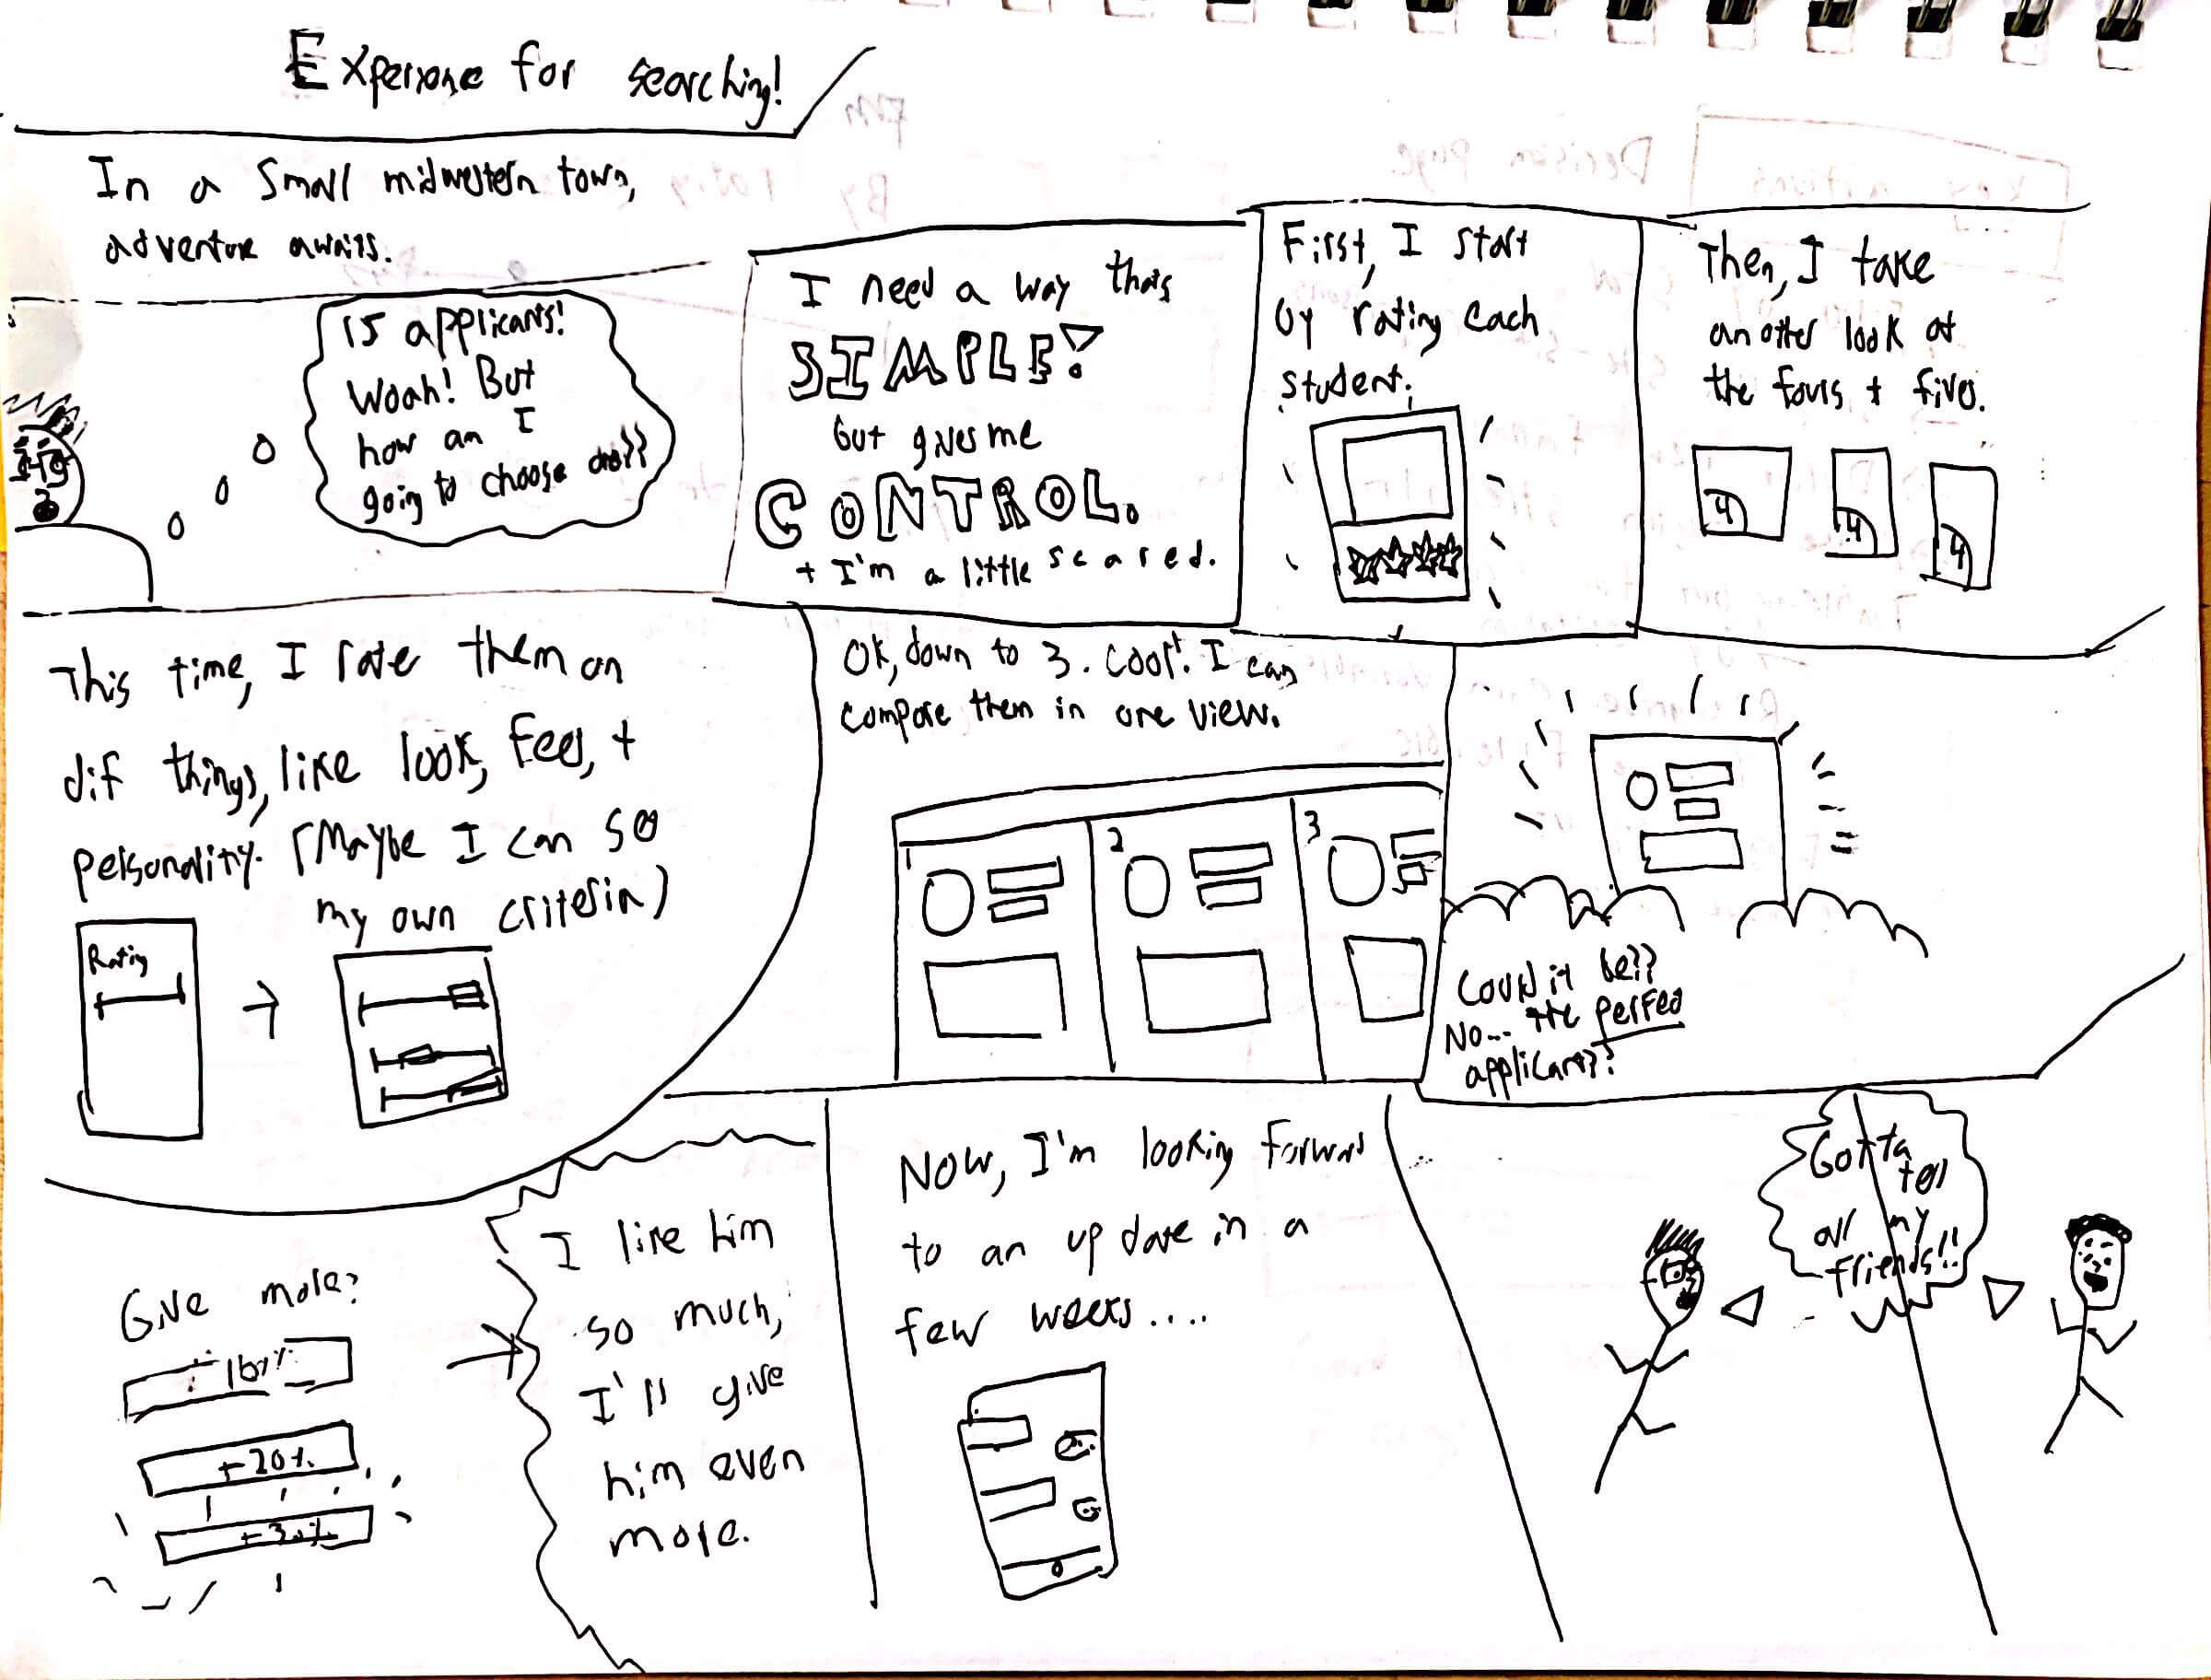 Experience for searching!
In a small midwestern town,
adventure awaits.
15 applicants!
Woah! But
how am I
going to choose
I need a way thats
SIMPLE!
but gives me
CONTROL.
+ I'm a little scared.
First, I start
by rating each
student.
Then, I take
another look at
the fours + fives.
4
4
4
This time, I rate them on
dif things, like look, feel, +
personality. (Maybe I can so
my own criteria)
Rating
Ok, down to 3. Cool! I can
compare them in one view.
1
2
3
Could it be??
No... the perfect
applicant??
Give more?
+20%
I like him
so much,
I'll give
him even
more.
Now, I'm looking forward
to an update in a
few weeks....
Gotta
tell
all my
friends!!
Decision Page
By